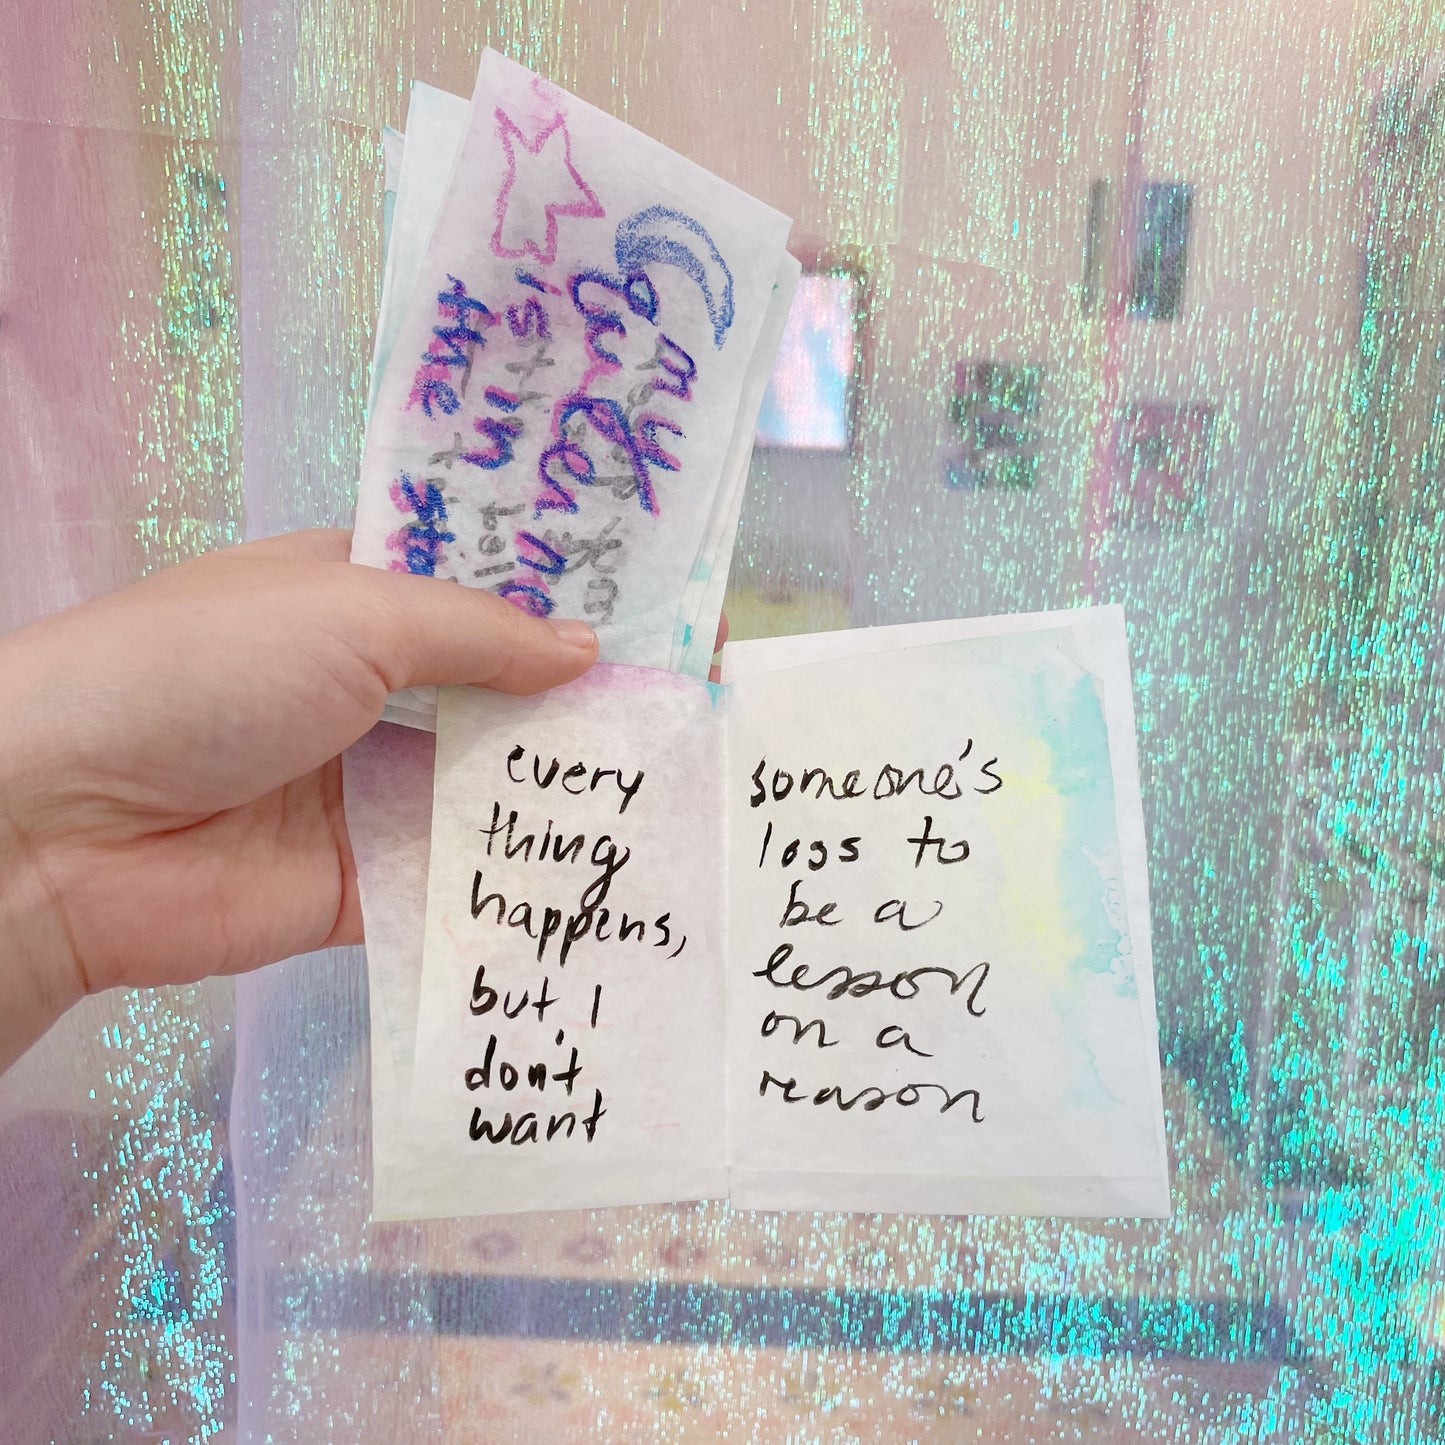 my
is in
the
every
thing
happens,
but I
don't
want
someone's
loss to
be a
lesson
on a
reason